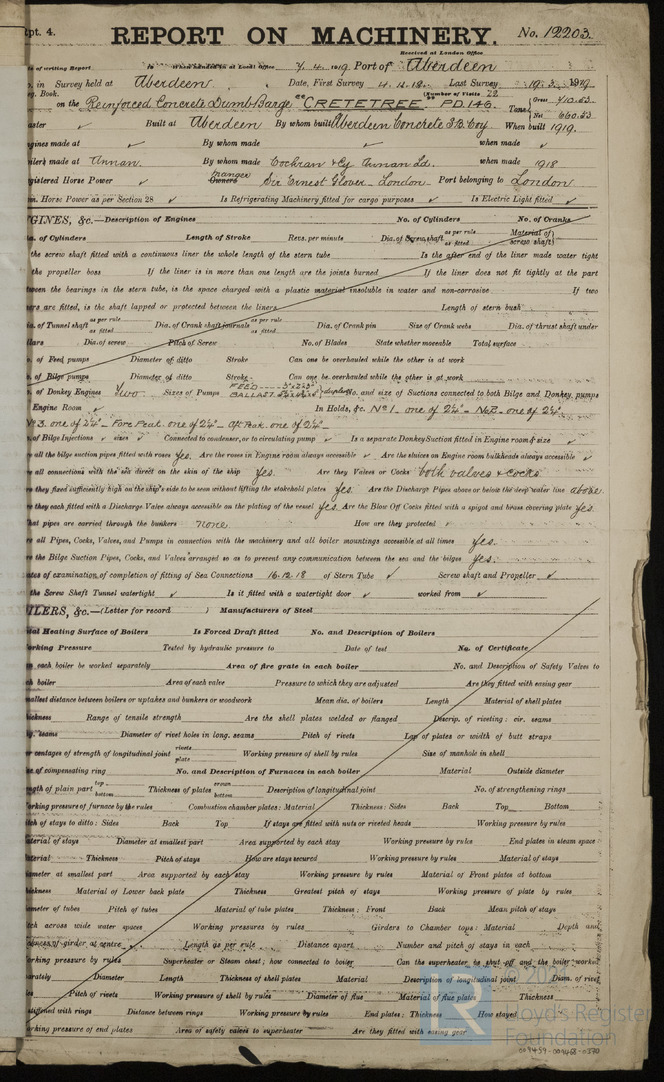 pt. 4. REPORT ON MACHINERY. No. 12203.
Received at London Office
of writing Report When handed in at Local Office 7/4/1919 Port of Aberdeen
in Survey held at Aberdeen Date, First Survey 4.12.18. Last Survey 19.3.1919
g. Book. (Number of Visits 22
on the Reinforced Concrete Dumb Barge "CRETETREE" P.D. 146. Tons Gross 710.53 Net 660.53
aster ✓ Built at Aberdeen By whom built Aberdeen Concrete S.B. Coy When built 1919.
gines made at ✓ By whom made ✓ when made ✓
oilers made at Annan. By whom made Cochran & Cy Annan Ld. when made 1918
gistered Horse Power ✓ Owners Manager Sir Ernest Glover - London Port belonging to London
m. Horse Power as per Section 28 ✓ Is Refrigerating Machinery fitted for cargo purposes ✓ Is Electric Light fitted ✓
GINES, &c.—Description of Engines No. of Cylinders No. of Cranks
a. of Cylinders Length of Stroke Revs. per minute Dia. of Screw shaft as per rule as fitted Material of screw shaft
the screw shaft fitted with a continuous liner the whole length of the stern tube Is the after end of the liner made water tight
the propeller boss If the liner is in more than one length are the joints burned If the liner does not fit tightly at the part
tween the bearings in the stern tube, is the space charged with a plastic material insoluble in water and non-corrosive If two
ers are fitted, is the shaft lapped or protected between the liners Length of stern bush
ia. of Tunnel shaft as per rule as fitted Dia. of Crank shaft journals as per rule as fitted Dia. of Crank pin Size of Crank webs Dia. of thrust shaft under
llars Dia. of screw Pitch of Screw No. of Blades State whether moveable Total surface
. of Feed pumps Diameter of ditto Stroke Can one be overhauled while the other is at work
. of Bilge pumps Diameter of ditto Stroke Can one be overhauled while the other is at work
. of Donkey Engines Two Sizes of Pumps FEED BALLAST duplex No. and size of Suctions connected to both Bilge and Donkey pumps
Engine Room ✓ In Holds, &c. No 1. one of 2¼" - No 2. one of 2¼"
No 3. one of 2¼" - Fore Peak. one of 2¼" Aft Peak. one of 2¼"
. of Bilge Injections ✓ sizes ✓ Connected to condenser, or to circulating pump ✓ Is a separate Donkey Suction fitted in Engine room & size ✓
re all the bilge suction pipes fitted with roses Yes. Are the roses in Engine room always accessible ✓ Are the sluices on Engine room bulkheads always accessible ✓
re all connections with the sea direct on the skin of the ship Yes. Are they Valves or Cocks both valves & cocks.
re they fixed sufficiently high on the ship's side to be seen without lifting the stokehold plates Yes. Are the Discharge Pipes above or below the deep water line above.
re they each fitted with a Discharge Valve always accessible on the plating of the vessel Yes. Are the Blow Off Cocks fitted with a spigot and brass covering plate Yes.
hat pipes are carried through the bunkers none How are they protected ✓
re all Pipes, Cocks, Valves, and Pumps in connection with the machinery and all boiler mountings accessible at all times Yes.
re the Bilge Suction Pipes, Cocks, and Valves arranged so as to prevent any communication between the sea and the bilges Yes.
ates of examination of completion of fitting of Sea Connections 16.12.18 of Stern Tube ✓ Screw shaft and Propeller ✓
the Screw Shaft Tunnel watertight ✓ Is it fitted with a watertight door ✓ worked from ✓
OILERS, &c.—(Letter for record ) Manufacturers of Steel
otal Heating Surface of Boilers Is Forced Draft fitted No. and Description of Boilers
orking Pressure Tested by hydraulic pressure to Date of test No. of Certificate
an each boiler be worked separately Area of fire grate in each boiler No. and Description of Safety Valves to
ch boiler Area of each valve Pressure to which they are adjusted Are they fitted with easing gear
mallest distance between boilers or uptakes and bunkers or woodwork Mean dia. of boilers Length Material of shell plates
hickness Range of tensile strength Are the shell plates welded or flanged Descrip. of riveting: cir. seams
g. seams Diameter of rivet holes in long. seams Pitch of rivets Lap of plates or width of butt straps
er centages of strength of longitudinal joint rivets plate Working pressure of shell by rules Size of manhole in shell
ze of compensating ring No. and Description of Furnaces in each boiler Material Outside diameter
ngth of plain part top bottom Thickness of plates crown bottom Description of longitudinal joint No. of strengthening rings
orking pressure of furnace by the rules Combustion chamber plates: Material Thickness: Sides Back Top Bottom
tch of stays to ditto: Sides Back Top If stays are fitted with nuts or riveted heads Working pressure by rules
aterial of stays Diameter at smallest part Area supported by each stay Working pressure by rules End plates in steam space
aterial Thickness Pitch of stays How are stays secured Working pressure by rules Material of stays
iameter at smallest part Area supported by each stay Working pressure by rules Material of Front plates at bottom
hickness Material of Lower back plate Thickness Greatest pitch of stays Working pressure of plate by rules
iameter of tubes Pitch of tubes Material of tube plates Thickness: Front Back Mean pitch of stays
itch across wide water spaces Working pressures by rules Girders to Chamber tops: Material Depth and
ickness of girder at centre Length as per rule Distance apart Number and pitch of stays in each
orking pressure by rules Superheater or Steam chest; how connected to boiler Can the superheater be shut off and the boiler worked
parately Diameter Length Thickness of shell plates Material Description of longitudinal joint Diam. of rivet
les Pitch of rivets Working pressure of shell by rules Diameter of flue Material of flue plates Thickness
stiffened with rings Distance between rings Working pressure by rules End plates; Thickness How stayed
orking pressure of end plates Area of safety valves to superheater Are they fitted with easing gear
LR
Lloyd's Register
Foundation
009459-009468-0370